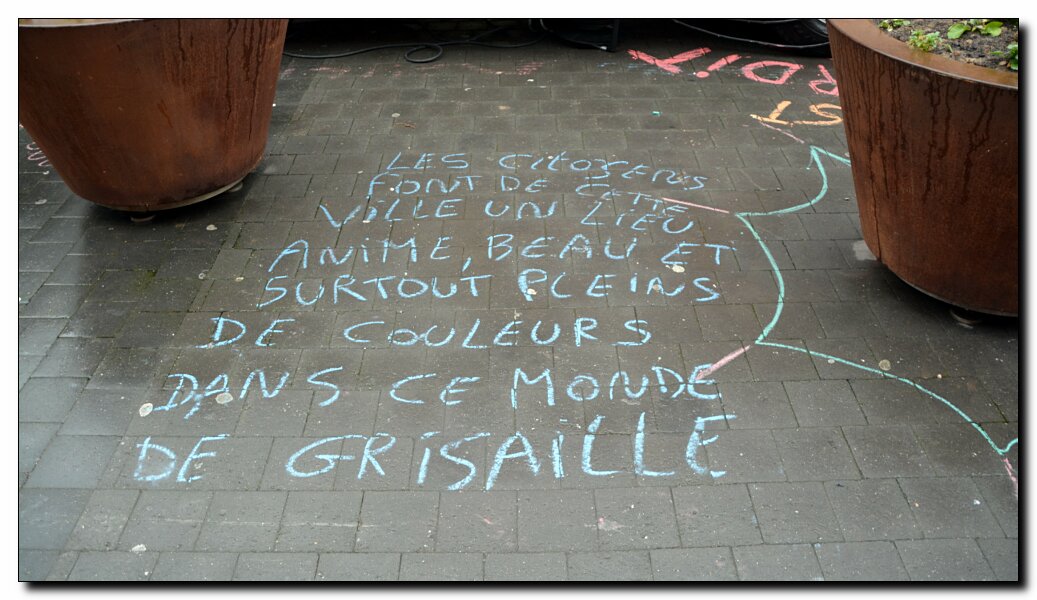 LES CITOYENS
FONT DE CETTE
VILLE UN LIEU
ANIME, BEAU ET
SURTOUT PLEINS
DE COULEURS
DANS CE MONDE
DE GRISAILLE